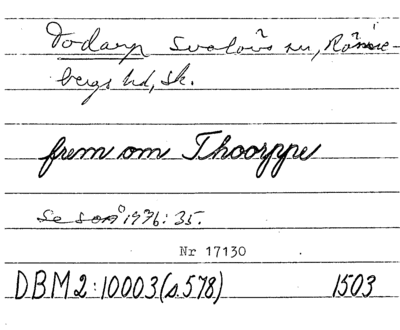 Todarp Svalövs sn, Rönne-
bergs hd, Sk.
frem om Thoorppe
Se SOÅ 1976: 35.
Nr 17130
DBM2:10003(s.578) 1503